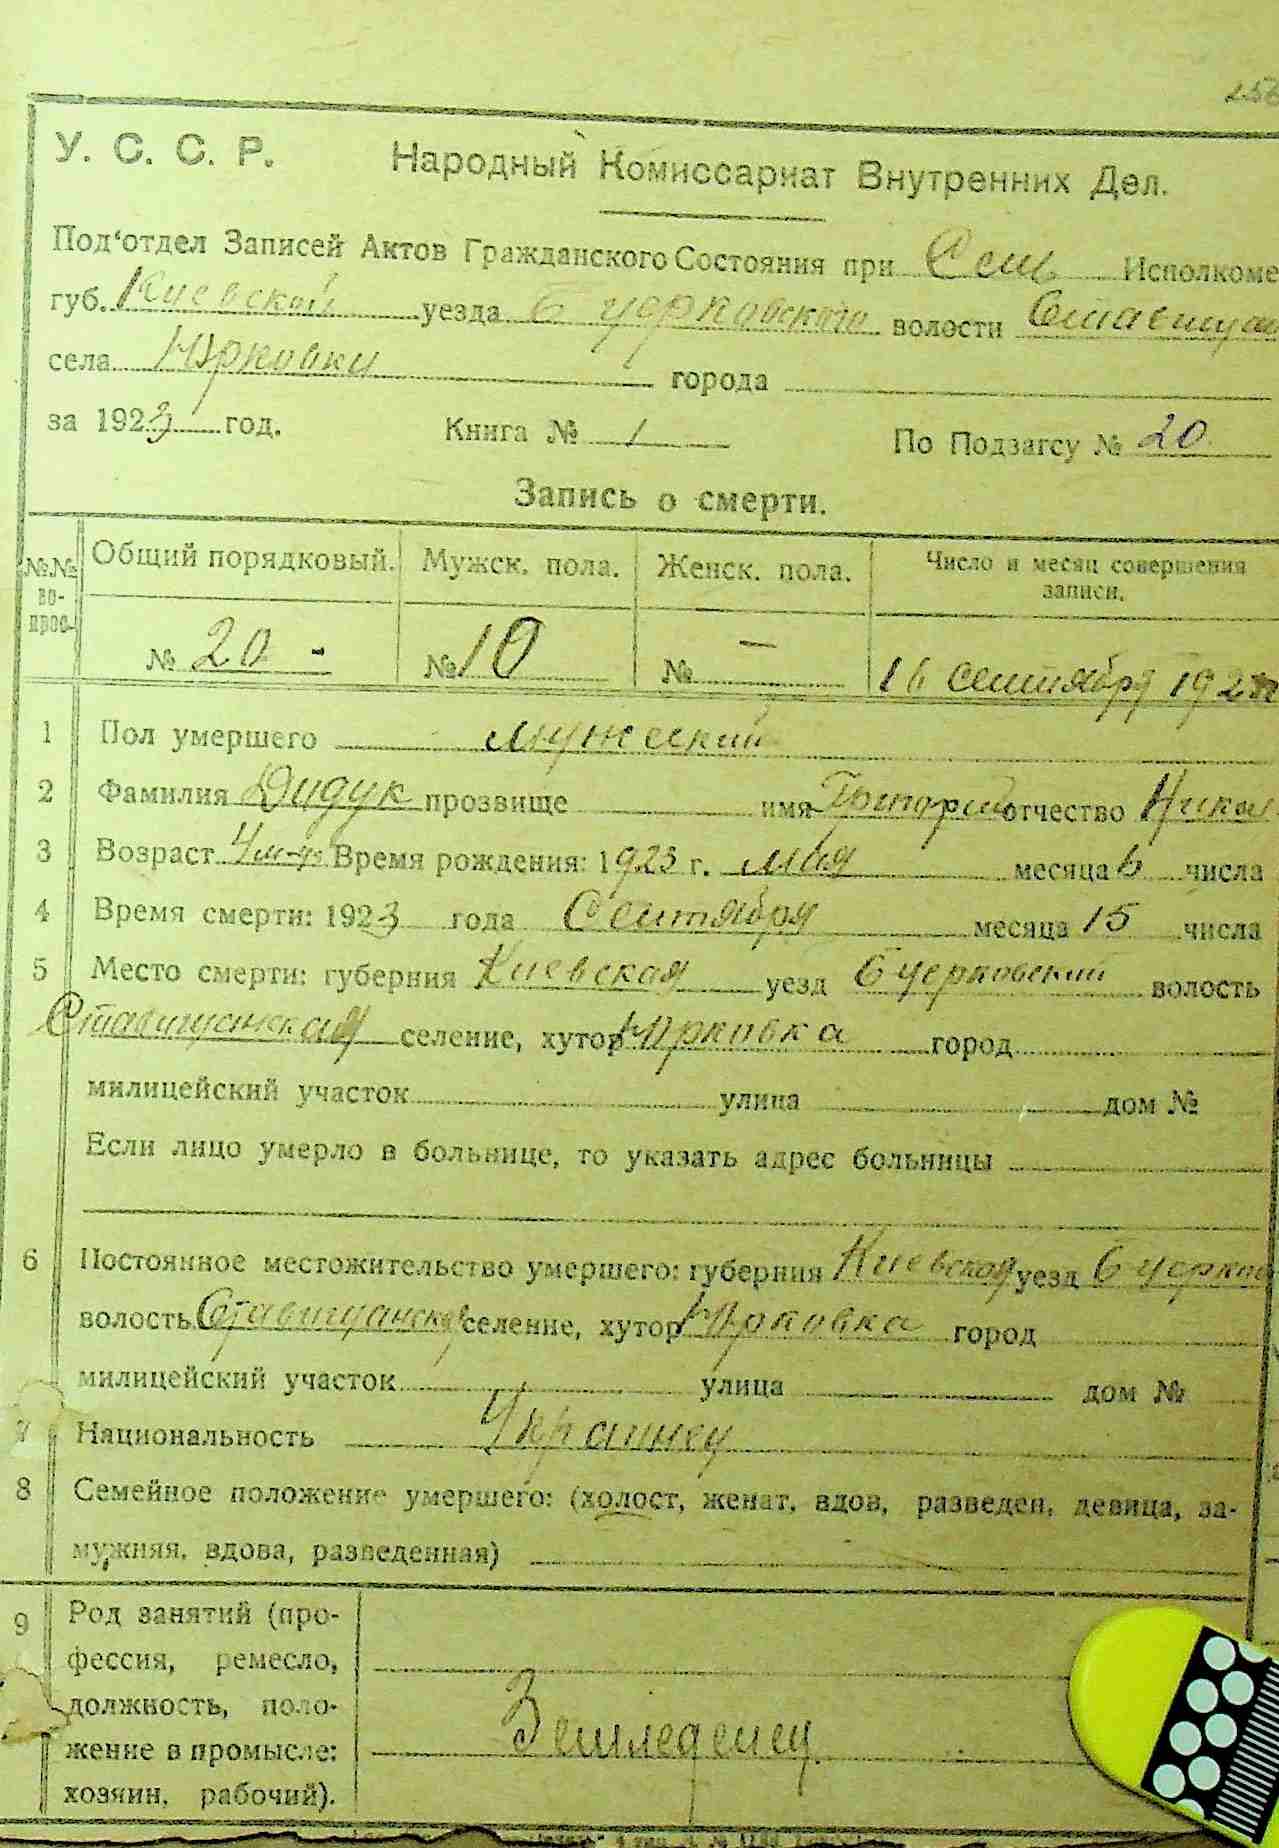 256
У. С. С. Р. Народный Комиссариат Внутренних Дел.
Под'отдел Записей Актов Гражданского Состояния при Сель Исполкоме
губ. Киевской уезда б церковского волости Ставищан
села Юрковки города
за 1923 год. Книга № 1 По Подзагсу № 20
Запись о смерти.
№№ во- прос. Общий порядковый. Мужск. пола. Женск. пола. Число и месяц совершения записи.
№ 20 - № 10 № — 16 сентября 192
1 Пол умершего мужеский
2 Фамилия Дидук прозвище имя Григорий отчество Никол
3 Возраст 4 м-ца Время рождения: 1923 г. мая месяца 6 числа
4 Время смерти: 1923 года Сентября месяца 15 числа
5 Место смерти: губерния Киевская уезд б церковский волость
Ставищанская селение, хутор Юрковка город
милицейский участок улица дом №
Если лицо умерло в больнице, то указать адрес больницы
6 Постоянное местожительство умершего: губерния Киевская уезд б церков
волость Ставищанская селение, хутор Юрковка город
милицейский участок улица дом №
7 Национальность Украинец
8 Семейное положение умершего: (холост, женат, вдов, разведен, девица, за-
мужняя, вдова, разведенная)
9 Род занятий (про-
фессия, ремесло,
должность, поло-
жение в промысле:
хозяин, рабочий).
Земледелец